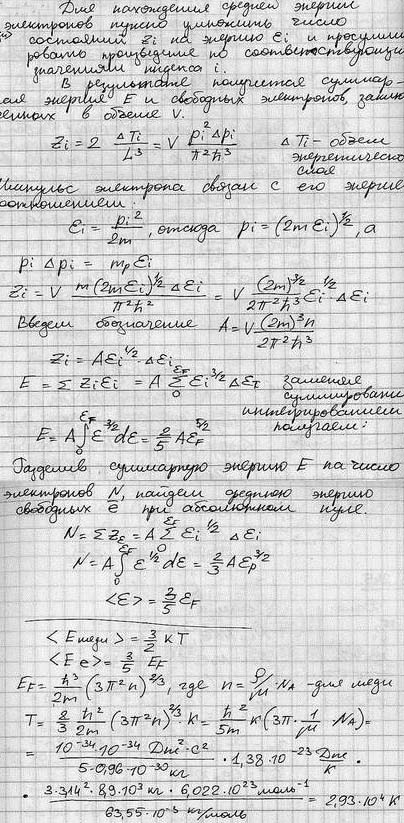 Для нахождения средней энергии
электронов нужно умножить число
состояний Zi на энергию εi и просумми
ровать произведение по соответствующи
значениям индекса i.
В результате получается суммар-
ная энергия E и свободных электронов, заклю
ченных в объеме V.
Zi = 2 ΔTi/L³ = V pi² Δpi/π²ħ³ ΔTi - объем
энергетическо
слоя
Импульс электрона связан с его энергие
соотношением:
εi = pi²/2m, отсюда pi = (2mεi)^1/2, а
pi Δpi = mpεi
Zi = V m(2mεi)^1/2 Δεi/π²ħ² = V (2m)^3/2/2π²ħ³ εi^1/2 · Δεi
Введем обозначение A = V (2m)³n/2π²ħ³
Zi = Aεi^1/2 · Δεi
E = Σ Ziεi = A Σ₀^εF εi^3/2 Δετ заменяя
суммирование
интегрированием
получаем:
E = A ∫₀^εF ε^3/2 dε = 2/5 AεF^5/2
Разделив суммарную энергию E на число
электронов N, найдем среднюю энергию
свободных e при абсолютном нуле.
N = ΣZε = A Σ₀^εF εi^1/2 Δεi
N = A ∫₀^εF ε^1/2 dε = 2/3 Aεp^3/2
<ε> = 3/5 εF
<E меди> = 3/2 kT
<E e> = 3/5 EF
EF = ħ³/2m (3π²n)^2/3, где n = ρ/μ · NA - для меди
T = 2/3 ħ²/2m (3π²n)^2/3 · k = ħ²/5m k (3π · 1/μ · NA) =
= 10^-34 · 10^-34 Дж² · c²/5 · 0,96 · 10^-30 кг · 1,38 · 10^-23 Дж/К ·
· 3 · 3,14² · 89 · 10³ кг · 6,022 · 10^23 моль^-1/63,55 · 10^-3 кг/моль = 2,93 · 10⁴ К